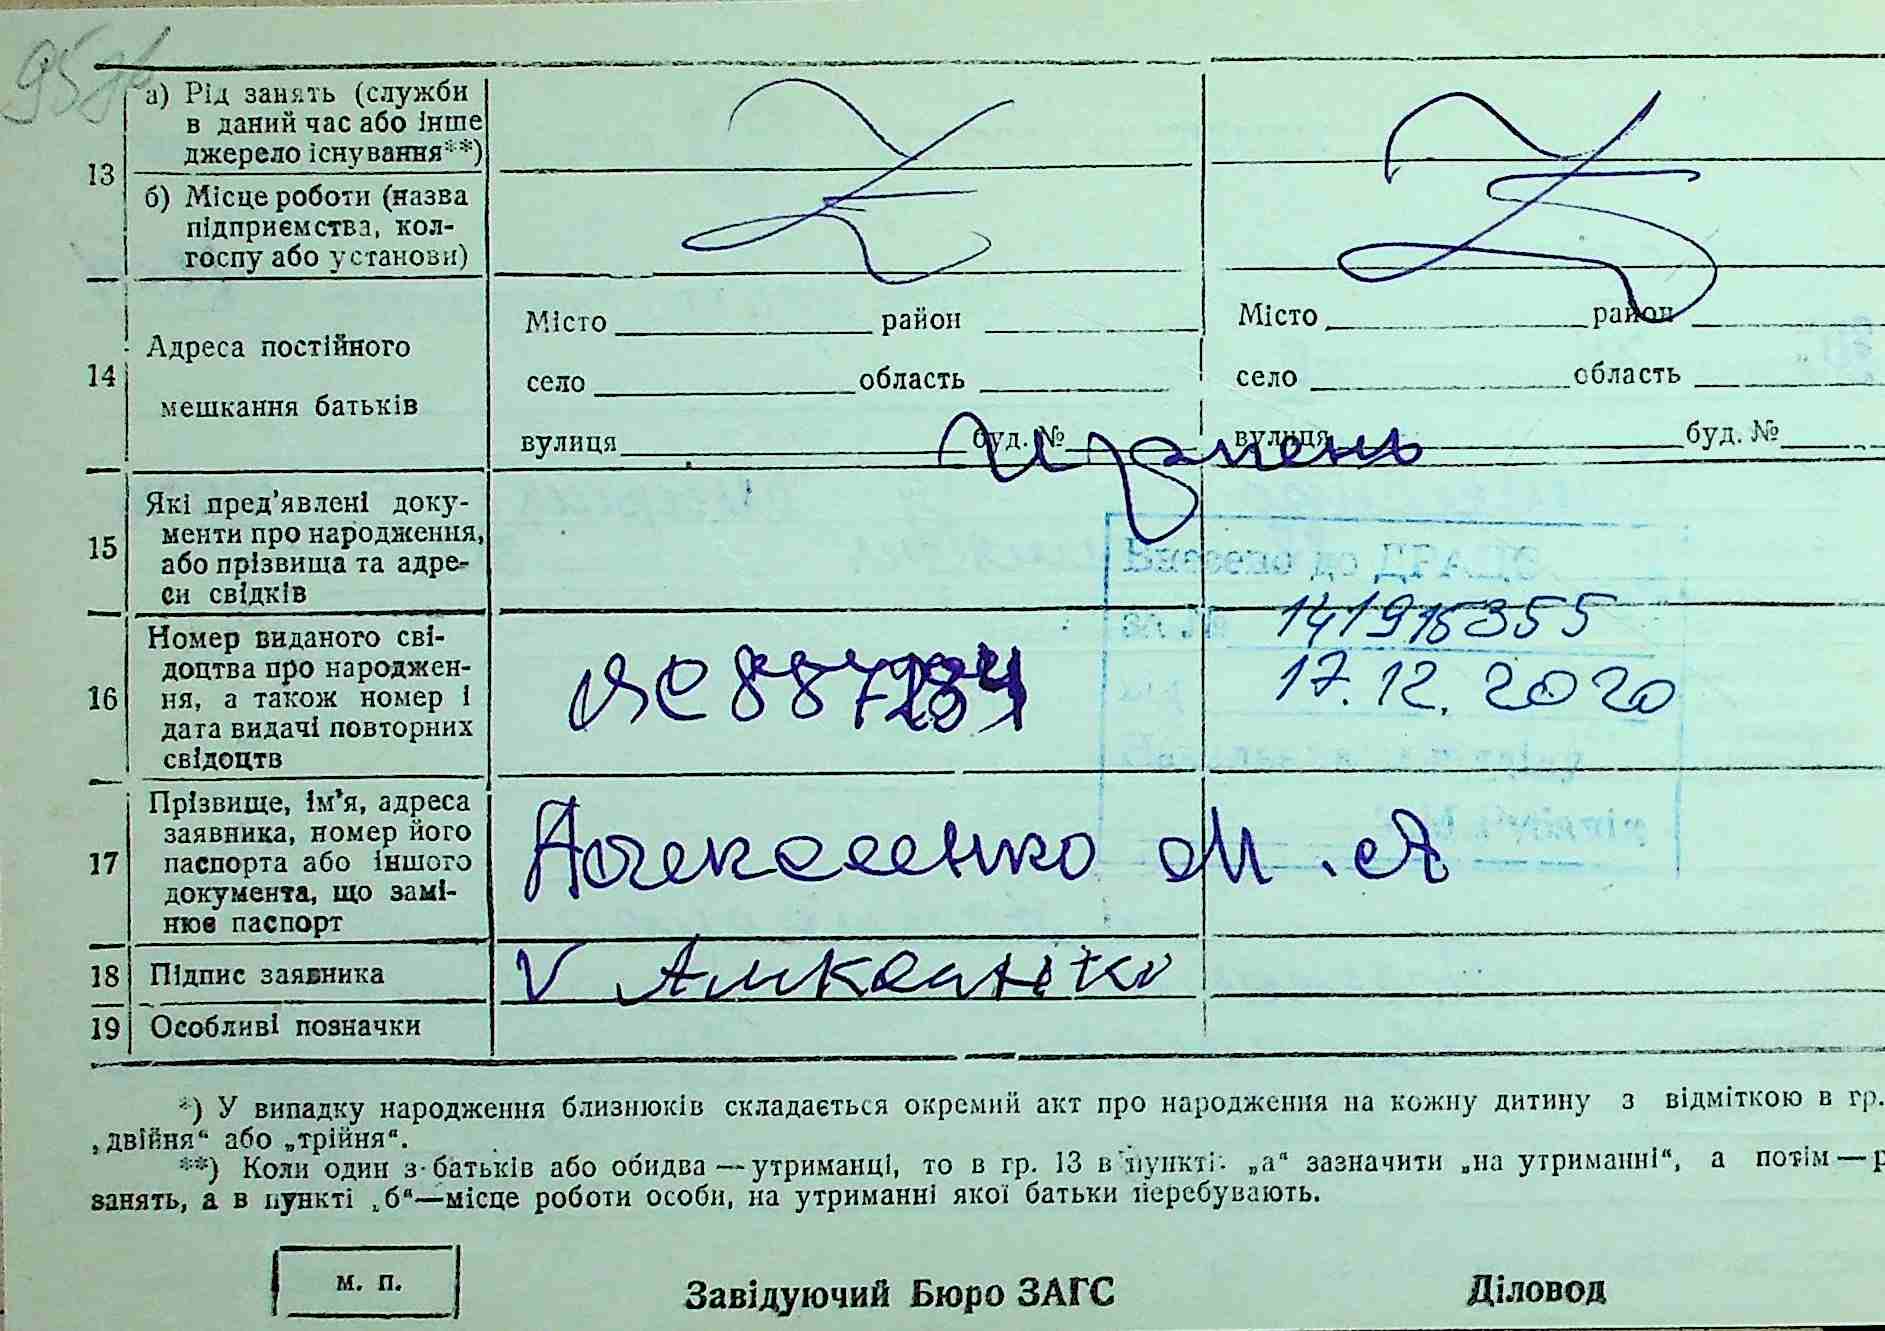 95
13
а) Рід занять (служби
в даний час або інше
джерело існування**)
б) Місце роботи (назва
підприємства, кол-
госпу або установи)
14
Адреса постійного
мешкання батьків
Місто район
село область
вулиця буд. №
Місто район
село область
вулиця буд. №
Ирпень
15
Які пред'явлені доку-
менти про народження,
або прізвища та адре-
си свідків
Внесено до ДРАЦС
за № 141916355
17.12.2020
16
Номер виданого сві-
доцтва про народжен-
ня, а також номер і
дата видачі повторних
свідоцтв
ЯС 887234
17
Прізвище, ім'я, адреса
заявника, номер його
паспорта або іншого
документа, що замі-
нює паспорт
Алексеенко М. А
18 Підпис заявника
V
19 Особливі позначки
*) У випадку народження близнюків складається окремий акт про народження на кожну дитину з відміткою в гр.
„двійня“ або „трійня“.
**) Коли один з батьків або обидва — утриманці, то в гр. 13 в пункті „а“ зазначити „на утриманні“, а потім — р
занять, а в пункті „б“—місце роботи особи, на утриманні якої батьки перебувають.
м. п.
Завідуючий Бюро ЗАГС
Діловод